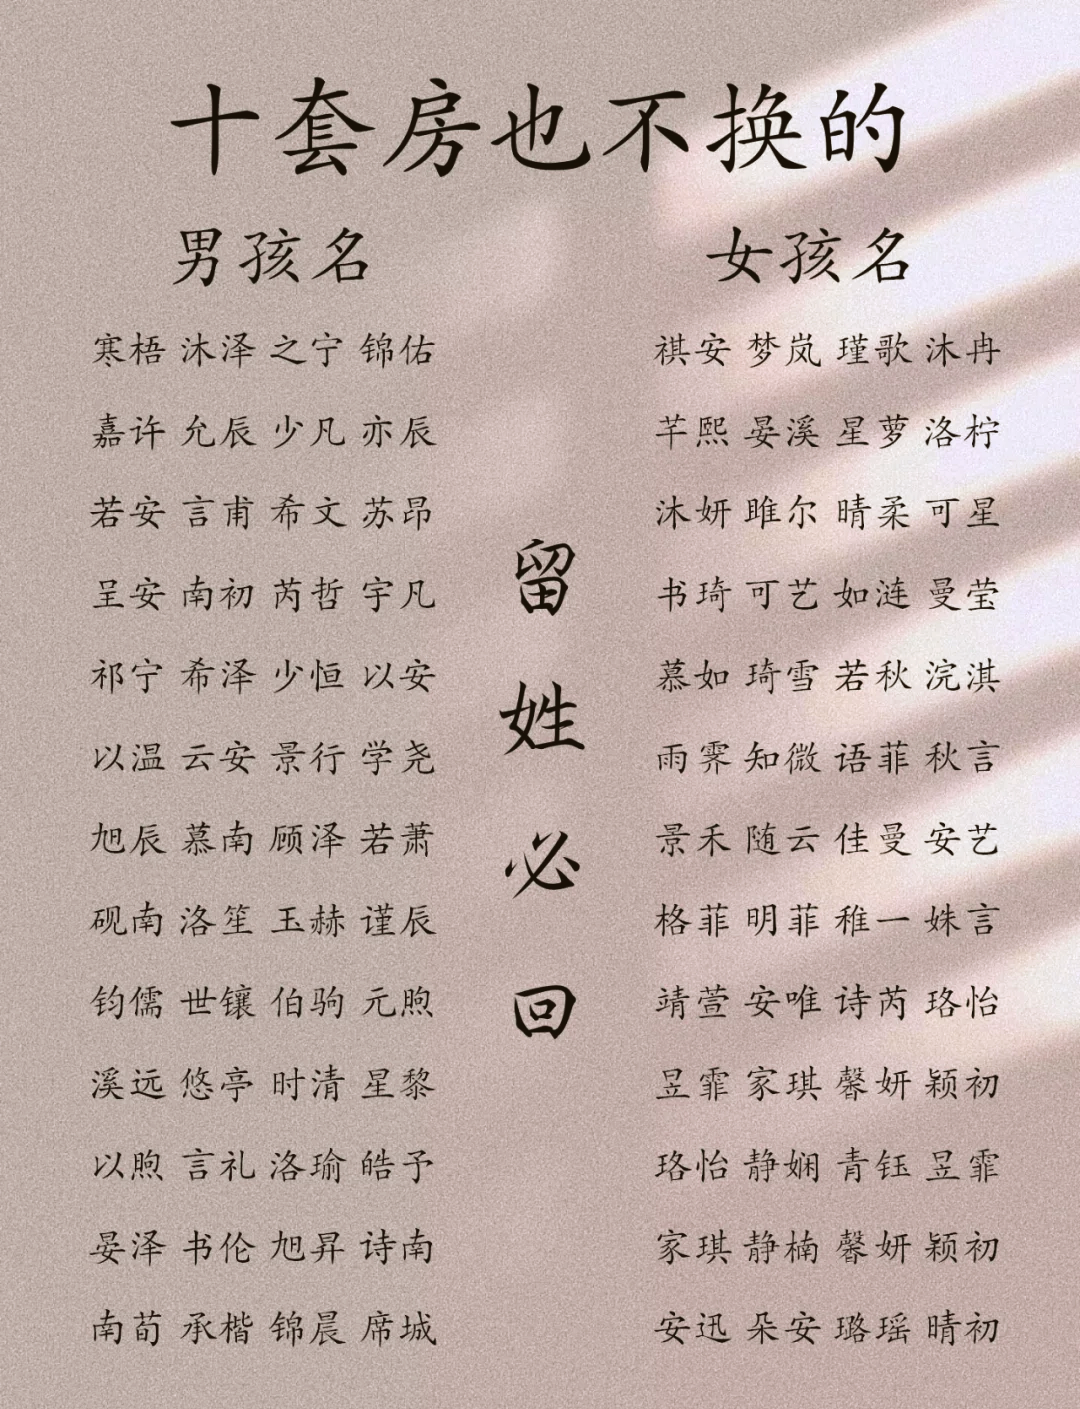 十套房也不换的
男孩名
寒梧 沐泽 之宁 锦佑
嘉许 允辰 少凡 亦辰
若安 言甫 希文 苏昂
呈安 南初 芮哲 宇凡
祁宁 希泽 少恒 以安
以温 云安 景行 学尧
旭辰 慕南 顾泽 若萧
砚南 洛笙 玉赫 谨辰
钧儒 世镶 伯驹 元煦
溪远 悠亭 时清 星黎
以煦 言礼 洛瑜 皓予
晏泽 书伦 旭昇 诗南
南荀 承楷 锦晨 席城
留
姓
必
回
女孩名
祺安 梦岚 瑾歌 沐冉
芊熙 晏溪 星萝 洛柠
沐妍 雎尔 晴柔 可星
书琦 可艺 如涟 曼莹
慕如 琦雪 若秋 浣淇
雨霁 知微 语菲 秋言
景禾 随云 佳曼 安艺
格菲 明菲 稚一 姝言
靖萱 安唯 诗芮 珞怡
昱霏 家琪 馨妍 颖初
珞怡 静娴 青钰 昱霏
家琪 静楠 馨妍 颖初
安迅 朵安 璐瑶 晴初